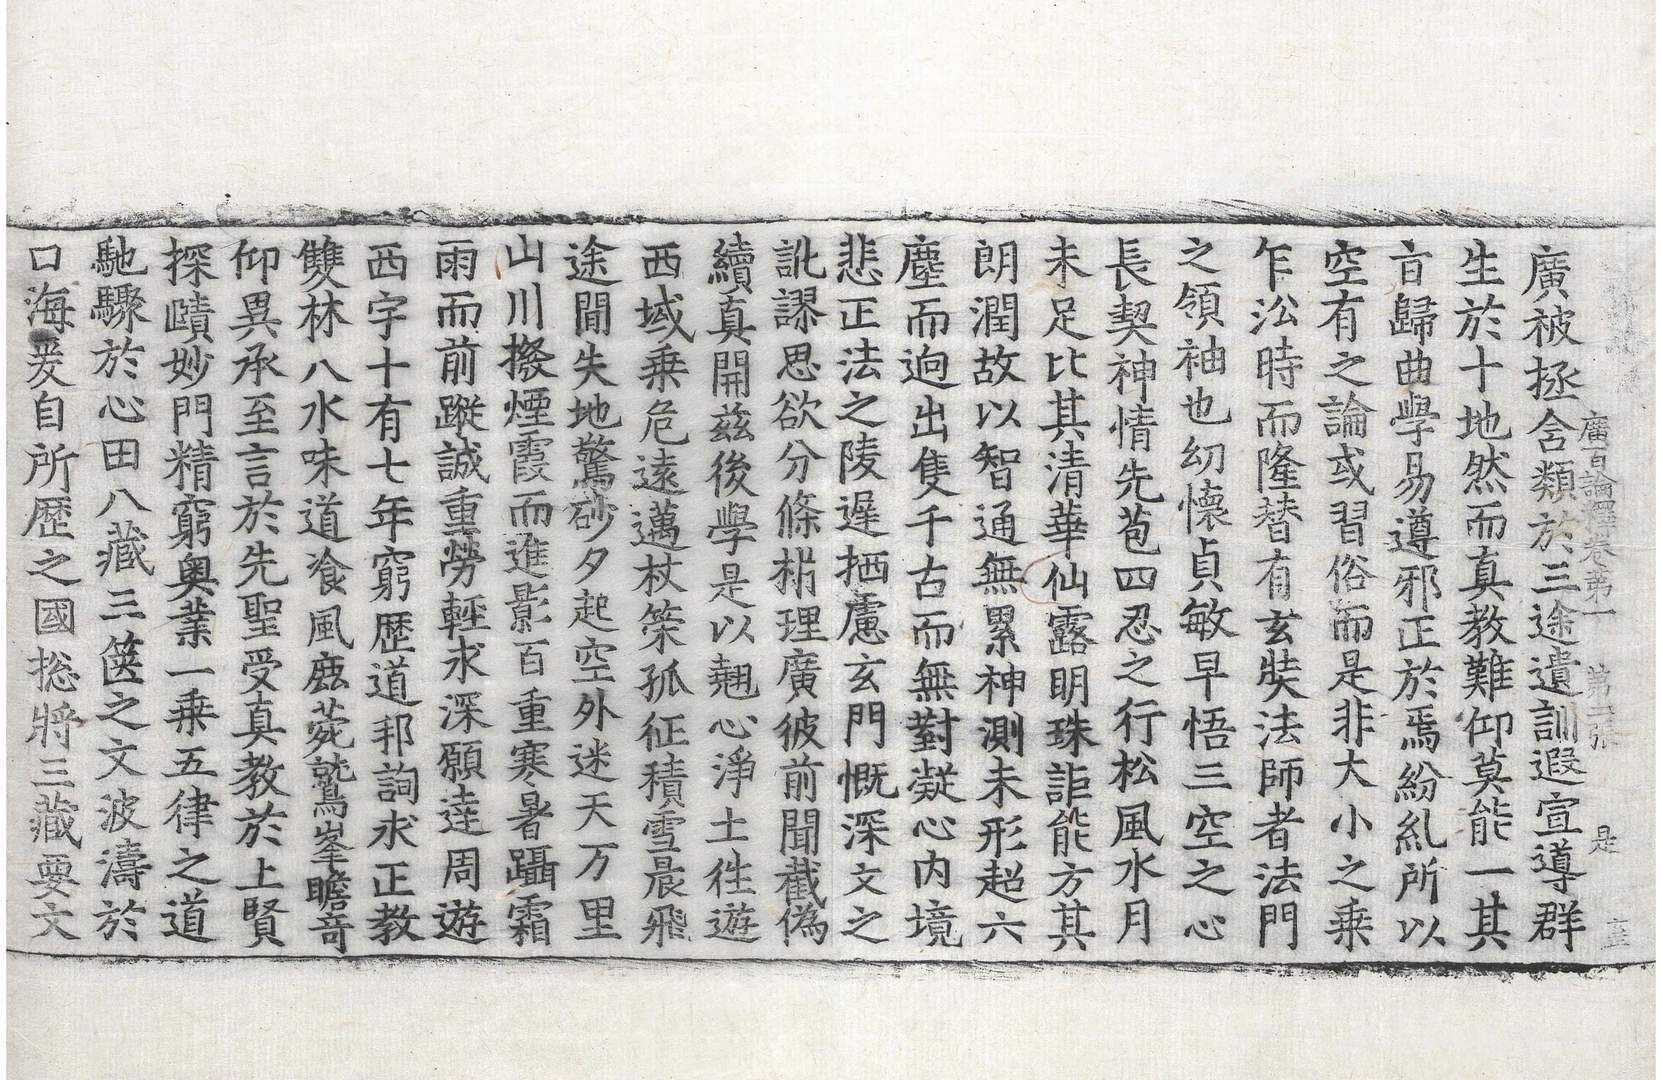 廣百論釋卷第一 第二張 是
廣被拯含類於三途遺訓遐宣導群
生於十地然而真教難仰莫能一其
㫖歸曲學易遵邪正於焉紛糺所以
空有之論或習俗而是非大小之乗
乍沿時而隆替有玄奘法師者法門
之領袖也幼懷貞敏早悟三空之心
長契神情先苞四忍之行松風水月
未足比其清華仙露明珠詎能方其
朗潤故以智通無累神測未形超六
塵而逈出隻千古而無對凝心内境
悲正法之陵遲栖慮玄門慨深文之
訛謬思欲分條㭊理廣彼前聞截偽
續真開茲後學是以翹心淨土徃遊
西域乗危遠邁杖䇿孤征積雪晨飛
途間失地驚砂夕起空外迷天万里
山川撥煙霞而進影百重寒暑躡霜
雨而前蹤誠重勞輕求深願達周遊
西宇十有七年窮歷道邦詢求正教
雙林八水味道飡風鹿菀鷲峯瞻竒
仰異承至言於先聖受真教於上賢
探賾妙門精窮奥業一乗五律之道
馳驟於心田八藏三篋之文波濤於
口海爰自所歷之國捴將三藏要文